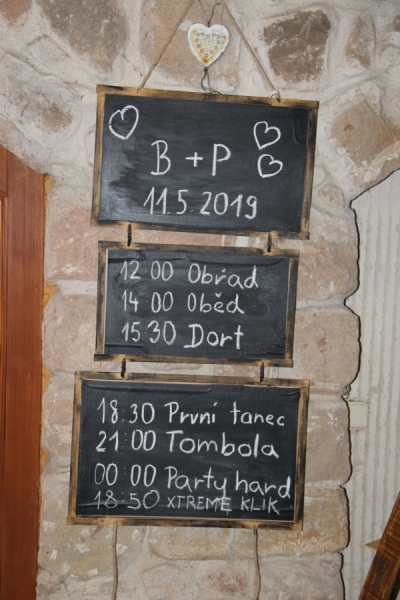 B + P
11.5.2019
12:00 Obřad
14:00 Oběd
15:30 Dort
18:30 První tanec
21:00 Tombola
00:00 Party hard
18:50 XTREME KLIK